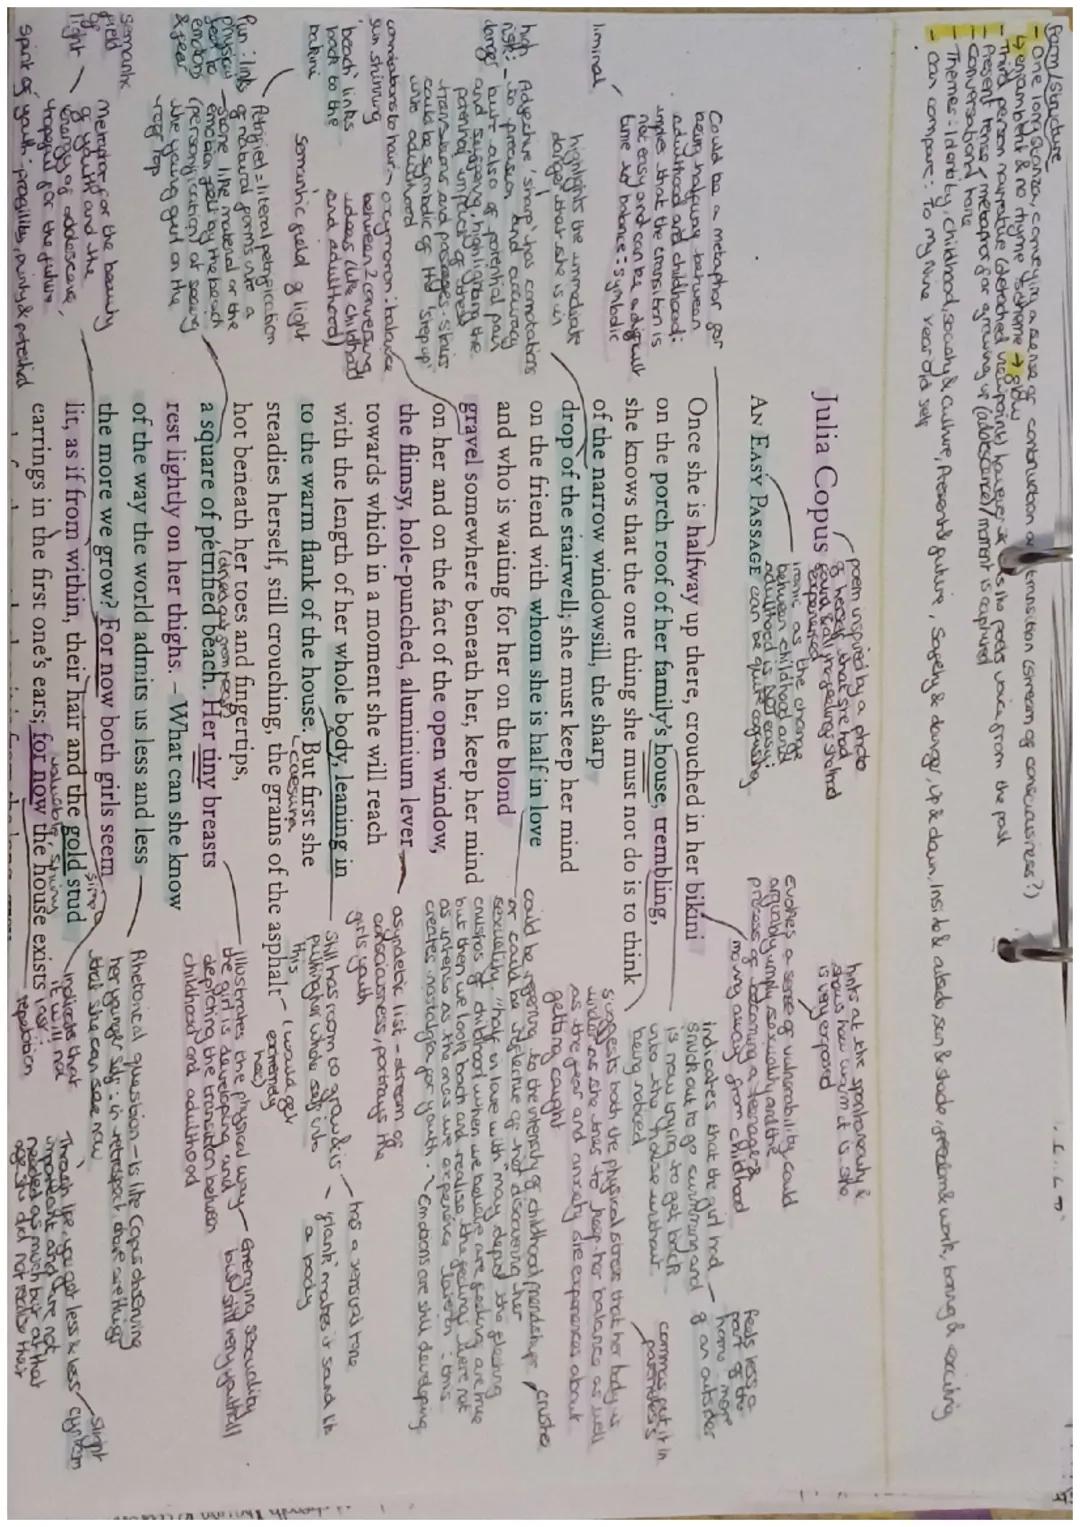 Form/Structure
- One long stanza, conveying a sense of continuation or transition (stream of consciousness?)
↳ enjambment & no rhyme scheme → flow
- Third person narrative (detached viewpoint) however is the poets voice from the past
- Present tense / metaphor for growing up (adolescence) / moment is captured
- Conversational tone
- Themes: identity, childhood, society & culture, Present & future, Safety & danger, up & down, inside & outside, sun & shade, freedom & work, boring & exciting
- Can compare: To my nine year old self
Julia Copus
poem inspired by a photo
of herself that she had
found, & all the feelings she had
experienced
AN EASY PASSAGE
ironic as the change
between childhood and
adulthood is not easy;
can be quite confusing
hints at the spontaneity &
shows how warm it is, she
is very exposed
evokes a sense of vulnerability, could
arguably imply sexuality and the
process of becoming a teenager &
moving away from childhood
Once she is halfway up there, crouched in her bikini
on the porch roof of her family's house, trembling,
she knows that the one thing she must not do is to think
of the narrow windowsill, the sharp
drop of the stairwell; she must keep her mind
on the friend with whom she is half in love
and who is waiting for her on the blond
gravel somewhere beneath her, keep her mind
on her and on the fact of the open window,
the flimsy, hole-punched, aluminium lever
towards which in a moment she will reach
with the length of her whole body, leaning in
to the warm flank of the house. But first she
steadies herself, still crouching, the grains of the asphalt
hot beneath her toes and fingertips,
a square of petrified beach. Her tiny breasts
rest lightly on her thighs. – What can she know
of the way the world admits us less and less
the more we grow? For now both girls seem
lit, as if from within, their hair and the gold stud
earrings in the first one's ears; for now the house exists
Could be a metaphor for
being halfway between
adulthood and childhood;
implies that the transition is
not easy and can be a difficult
time to balance: symbolic
liminal
highlights the immediate
danger that she is in
high
risk:
danger
Adjective 'sharp' has connotations
to precision and accuracy
but also of potential pain
and suffering, highlighting the
potential impact of these
transitions and passages - stairs
could be symbolic of the 'step up'
into adulthood
connotations to hair in
sun shining
oxymoron: balance
between 2 conversing
ideas (like childhood
and adulthood)
'beach' links
back to the
bikini
semantic field of light
Petrified = literal petrification
of natural forms into a
stone like material or the
emotion felt by the beach
(personification) at seeing
the young girl on the
roof top
Pun: links
physical
feel to
emotion
& fear
semantic
field
of
light
metaphor for the beauty
of youth and the
energy of adolescence,
hopeful for the future
spirit of youth: fragility, purity & potential
indicates that the girl had
snuck out to go swimming and
is now trying to get back
into the house without
being noticed
feels less a
part of the
home more
of an outsider
commas put it in
parenthesis
suggests both the physical stress that her body is
under as she tries to keep her balance as well
as the fear and anxiety she experiences about
getting caught
could be referring to the intensity of childhood friendships / crushes
or could be reflective of her discovering her
sexuality. "half in love with" may depict the fleeting
crushes of childhood when we believe our feelings are true
but then we look back and realise the feelings were not
as intense as the ones we experience later in life: this
creates nostalgia for youth. ~ Emotions are still developing
asyndetic list - stream of
consciousness, portrays the
girls youth
Still has room to grow & is
putting her whole self into
this
has a sensual tone
'flank' makes it sound like
a body
Caesura
(would get
extremely
hot)
(dried out from heat)
illustrates the physical way
the girl is developing and
depicting the transition between
childhood and adulthood
emerging sexuality
but still very youthful
Rhetorical question - is like Copus observing
her younger self: in retrospect, there are things
that she can see now
simile
valuable, shining
indicates that
it will not
last
repetition
Through life, you get less & less
important and are not
needed as much but at that
age she did not realise that
slight
cynicism